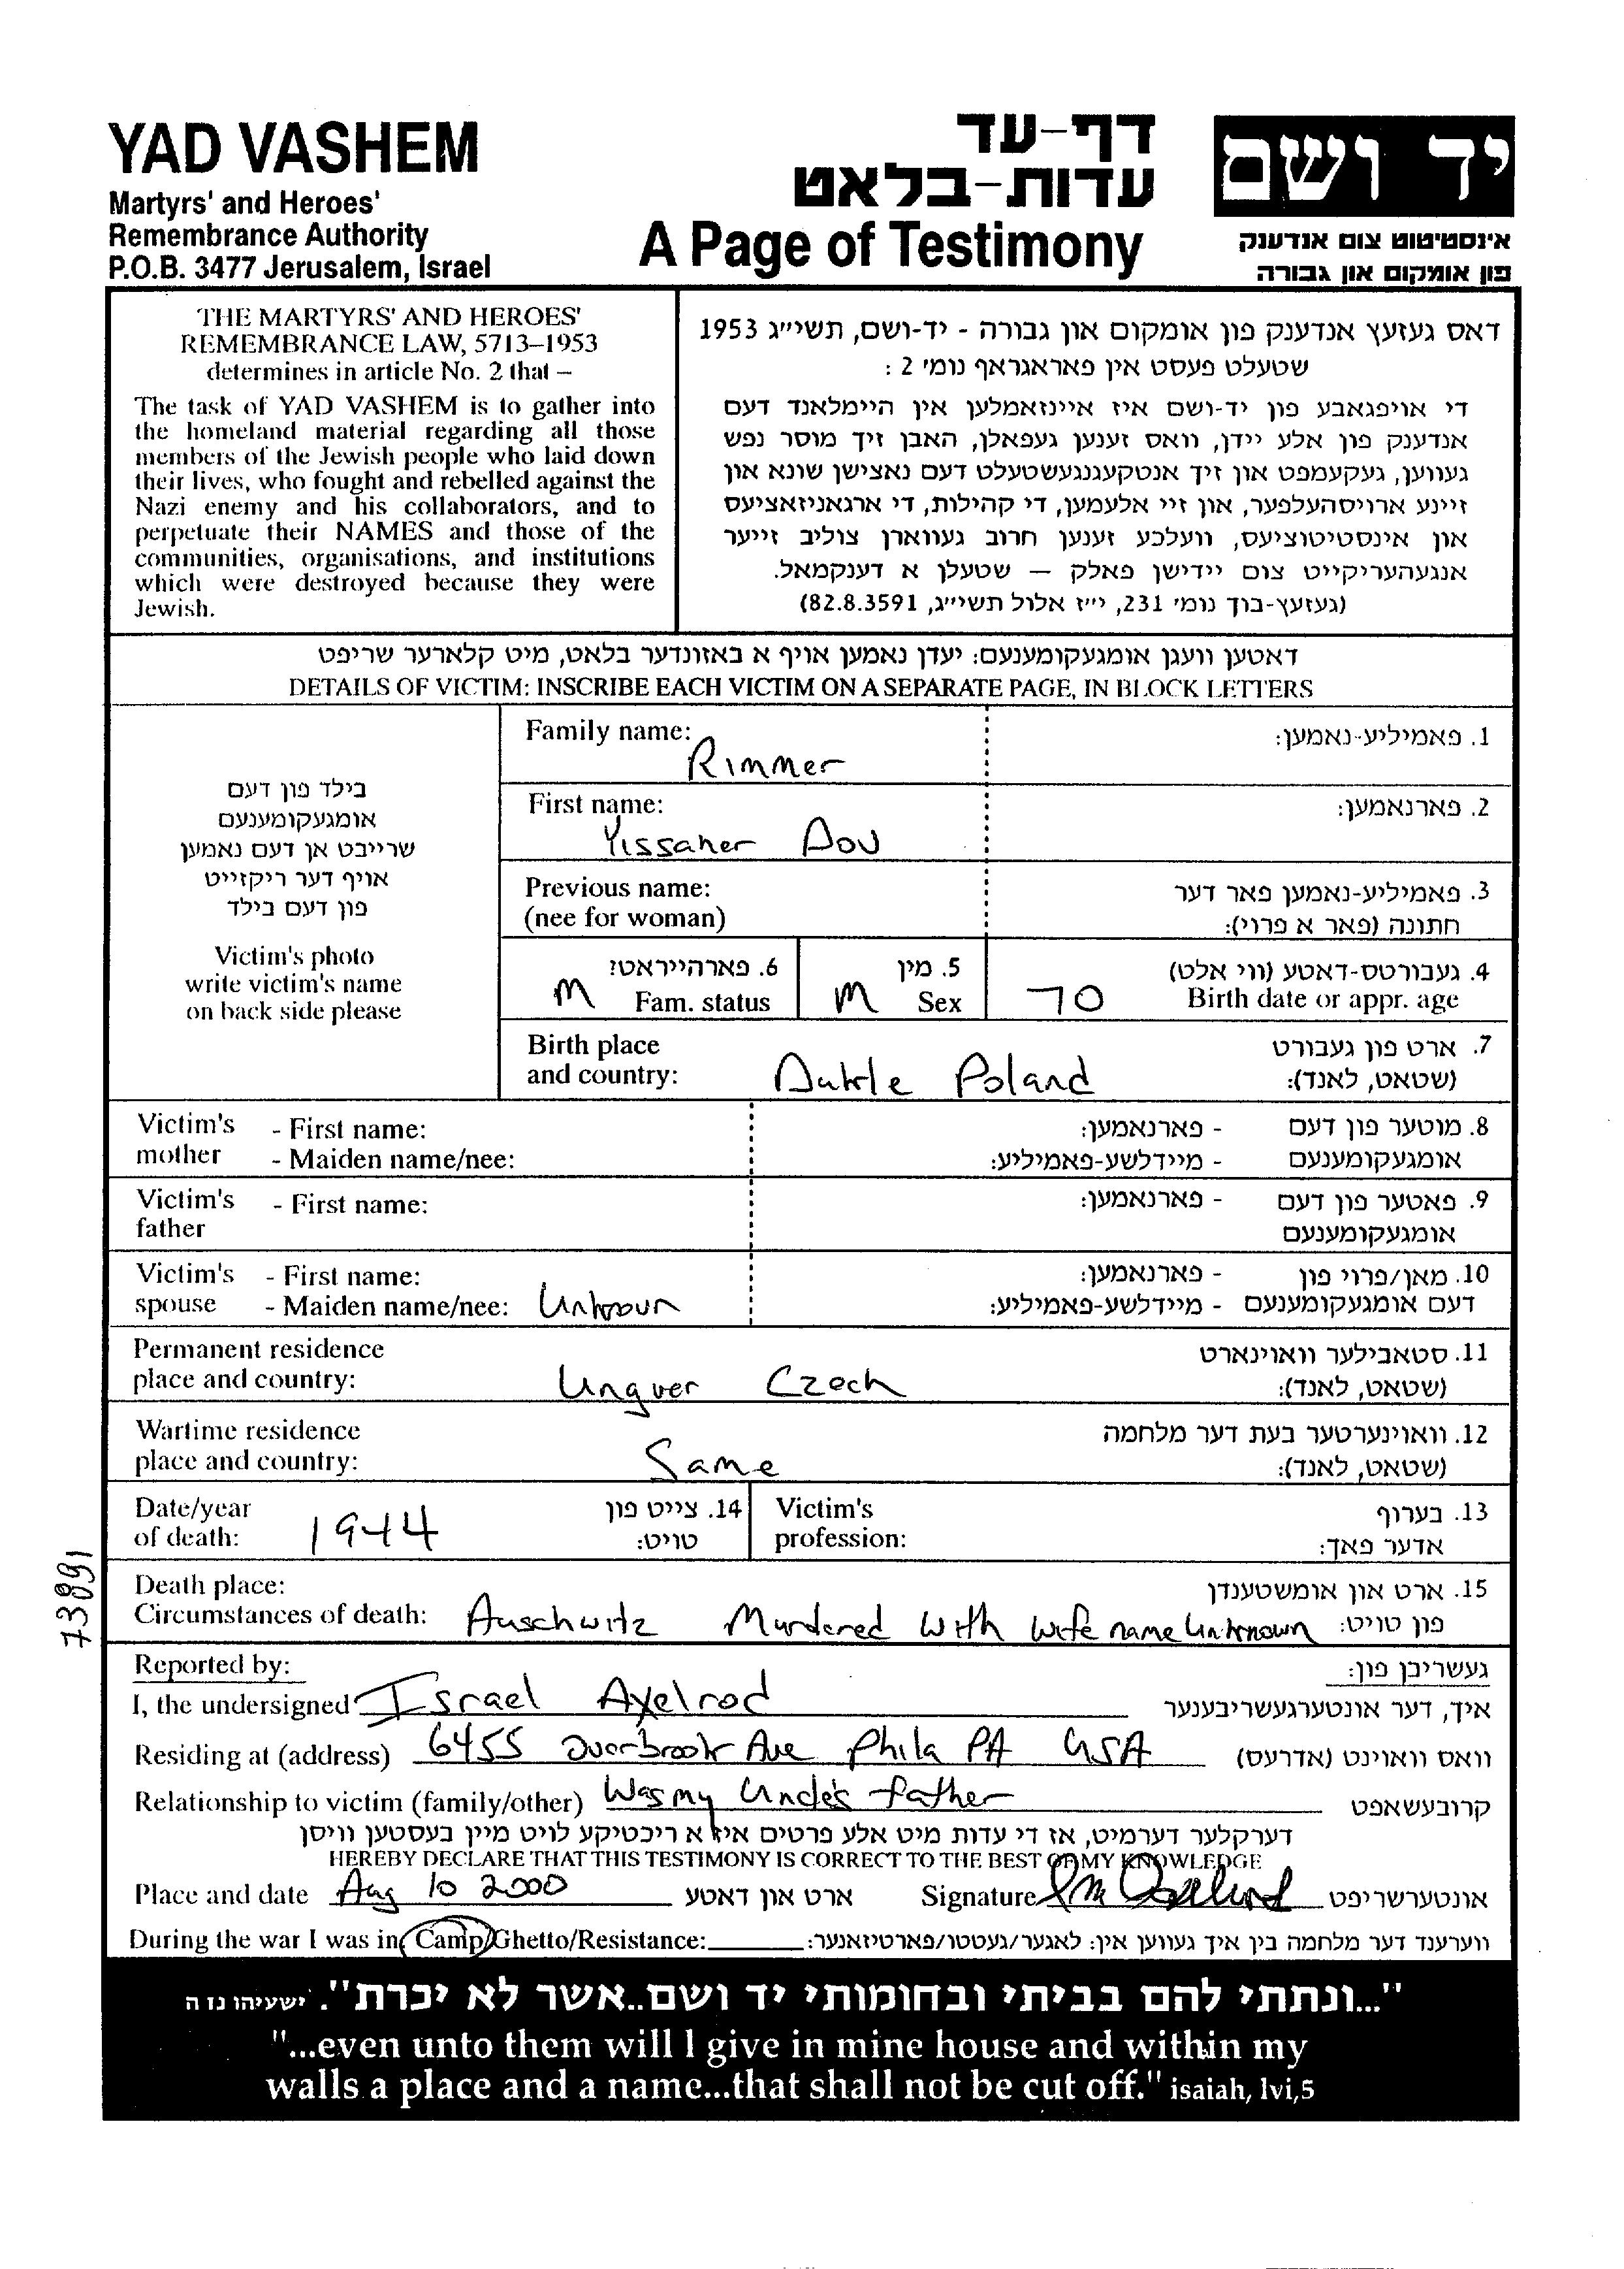 YAD VASHEM
Martyrs' and Heroes'
Remembrance Authority
P.O.B. 3477 Jerusalem, Israel
דף-עד
עדות-בלאט
A Page of Testimony
יד ושם
אינסטיטוט צום אנדענק
פון אומקום און גבורה
THE MARTYRS' AND HEROES'
REMEMBRANCE LAW, 5713–1953
determines in article No. 2 that –
The task of YAD VASHEM is to gather into
the homeland material regarding all those
members of the Jewish people who laid down
their lives, who fought and rebelled against the
Nazi enemy and his collaborators, and to
perpetuate their NAMES and those of the
communities, organisations, and institutions
which were destroyed because they were
Jewish.
דאס געזעץ אנדענק פון אומקום און גבורה - יד-ושם, תשי״ג 1953
שטעלט פעסט אין פאראגראף נומ׳ 2 :
די אויפגאבע פון יד-ושם איז איינזאמלען אין היימלאנד דעם
אנדענק פון אלע יידן, וואס זענען געפאלן, האבן זיך מוסר נפש
געווען, געקעמפט און זיך אנטקעגנגעשטעלט דעם נאצישן שונא און
זיינע ארויסהעלפער, און זיי אלעמען, די קהילות, די ארגאניזאציעס
און אינסטיטוציעס, וועלכע זענען חרוב געווארן צוליב זייער
אנגעהעריקייט צום יידישן פאלק — שטעלן א דענקמאל.
(געזעץ-בוך נומ׳ 231, י״ז אלול תשי״ג, 82.8.3591)
דאטען וועגן אומגעקומענעם: יעדן נאמען אויף א באזונדער בלאט, מיט קלארער שריפט
DETAILS OF VICTIM: INSCRIBE EACH VICTIM ON A SEPARATE PAGE, IN BLOCK LETTERS
בילד פון דעם
אומגעקומענעם
שרייבט אן דעם נאמען
אויף דער ריקזייט
פון דעם בילד
Victim's photo
write victim's name
on back side please
Family name: Rimmer 1. פאמיליע-נאמען:
First name: Yissaher Dov 2. פארנאמען:
Previous name: 3. פאמיליע-נאמען פאר דער
(nee for woman) חתונה (פאר א פרוי):
6. פארהייראט? 5. מין 4. געבורטס-דאטע (ווי אלט)
M Fam. status M Sex 70 Birth date or appr. age
Birth place 7. ארט פון געבורט
and country: Dukle Poland (שטאט, לאנד):
Victim's - First name: - פארנאמען: 8. מוטער פון דעם
mother - Maiden name/nee: - מיידלשע-פאמיליע: אומגעקומענעם
Victim's - First name: - פארנאמען: 9. פאטער פון דעם
father אומגעקומענעם
Victim's - First name: - פארנאמען: 10. מאן/פרוי פון
spouse - Maiden name/nee: Unknoun - מיידלשע-פאמיליע: דעם אומגעקומענעם
Permanent residence 11. סטאבילער וואוינארט
place and country: Ungver Czech (שטאט, לאנד):
Wartime residence 12. וואוינערטער בעת דער מלחמה
place and country: Same (שטאט, לאנד):
Date/year 14. צייט פון Victim's 13. בערוף
of death: 1944 טויט: profession: אדער פאך:
73891
Death place: 15. ארט און אומשטענדן
Circumstances of death: Auschwitz Murdered with wife name Unknown פון טויט:
Reported by: געשריבן פון:
I, the undersigned Israel Axelrod איך, דער אונטערגעשריבענער
Residing at (address) 6455 Overbrook Ave Phila PA USA וואס וואוינט (אדרעס)
Relationship to victim (family/other) Was my Uncle's father קרובעשאפט
דערקלער דערמיט, אז די עדות מיט אלע פרטים איז א ריכטיקע לויט מיין בעסטען וויסן
HEREBY DECLARE THAT THIS TESTIMONY IS CORRECT TO THE BEST OF MY KNOWLEDGE
Place and date Aug 10 2000 ארט און דאטע Signature אונטערשריפט
During the war I was in Camp/Ghetto/Resistance: ווערענד דער מלחמה בין איך געווען אין: לאגער/געטטו/פארטיזאנער:
"...ונתתי להם בביתי ובחומותי יד ושם..אשר לא יכרת". ישעיהו נז ה
"...even unto them will I give in mine house and within my
walls a place and a name...that shall not be cut off." isaiah, lvi,5